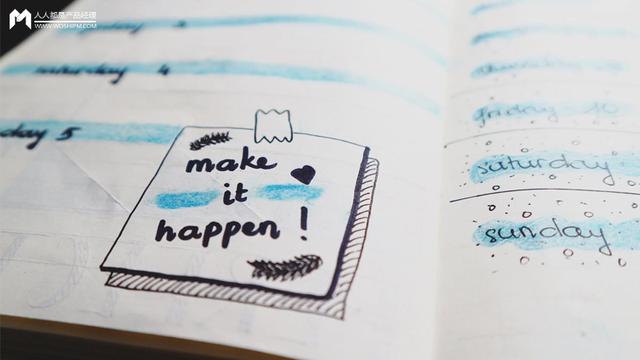 人人都是产品经理
WWW.WOSHIPM.COM
saturday 4
day 5
make
it
happen!
friday 10
saturday
sunday